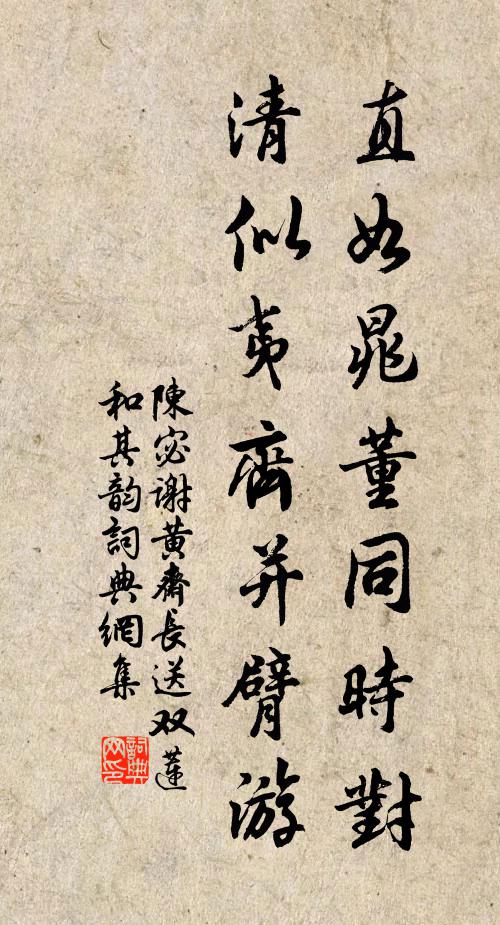 直如晁董同時對
清似夷齊并臂游
陳宓谢黄齋長送双蓮
和其韵詞典網集
詞典网印